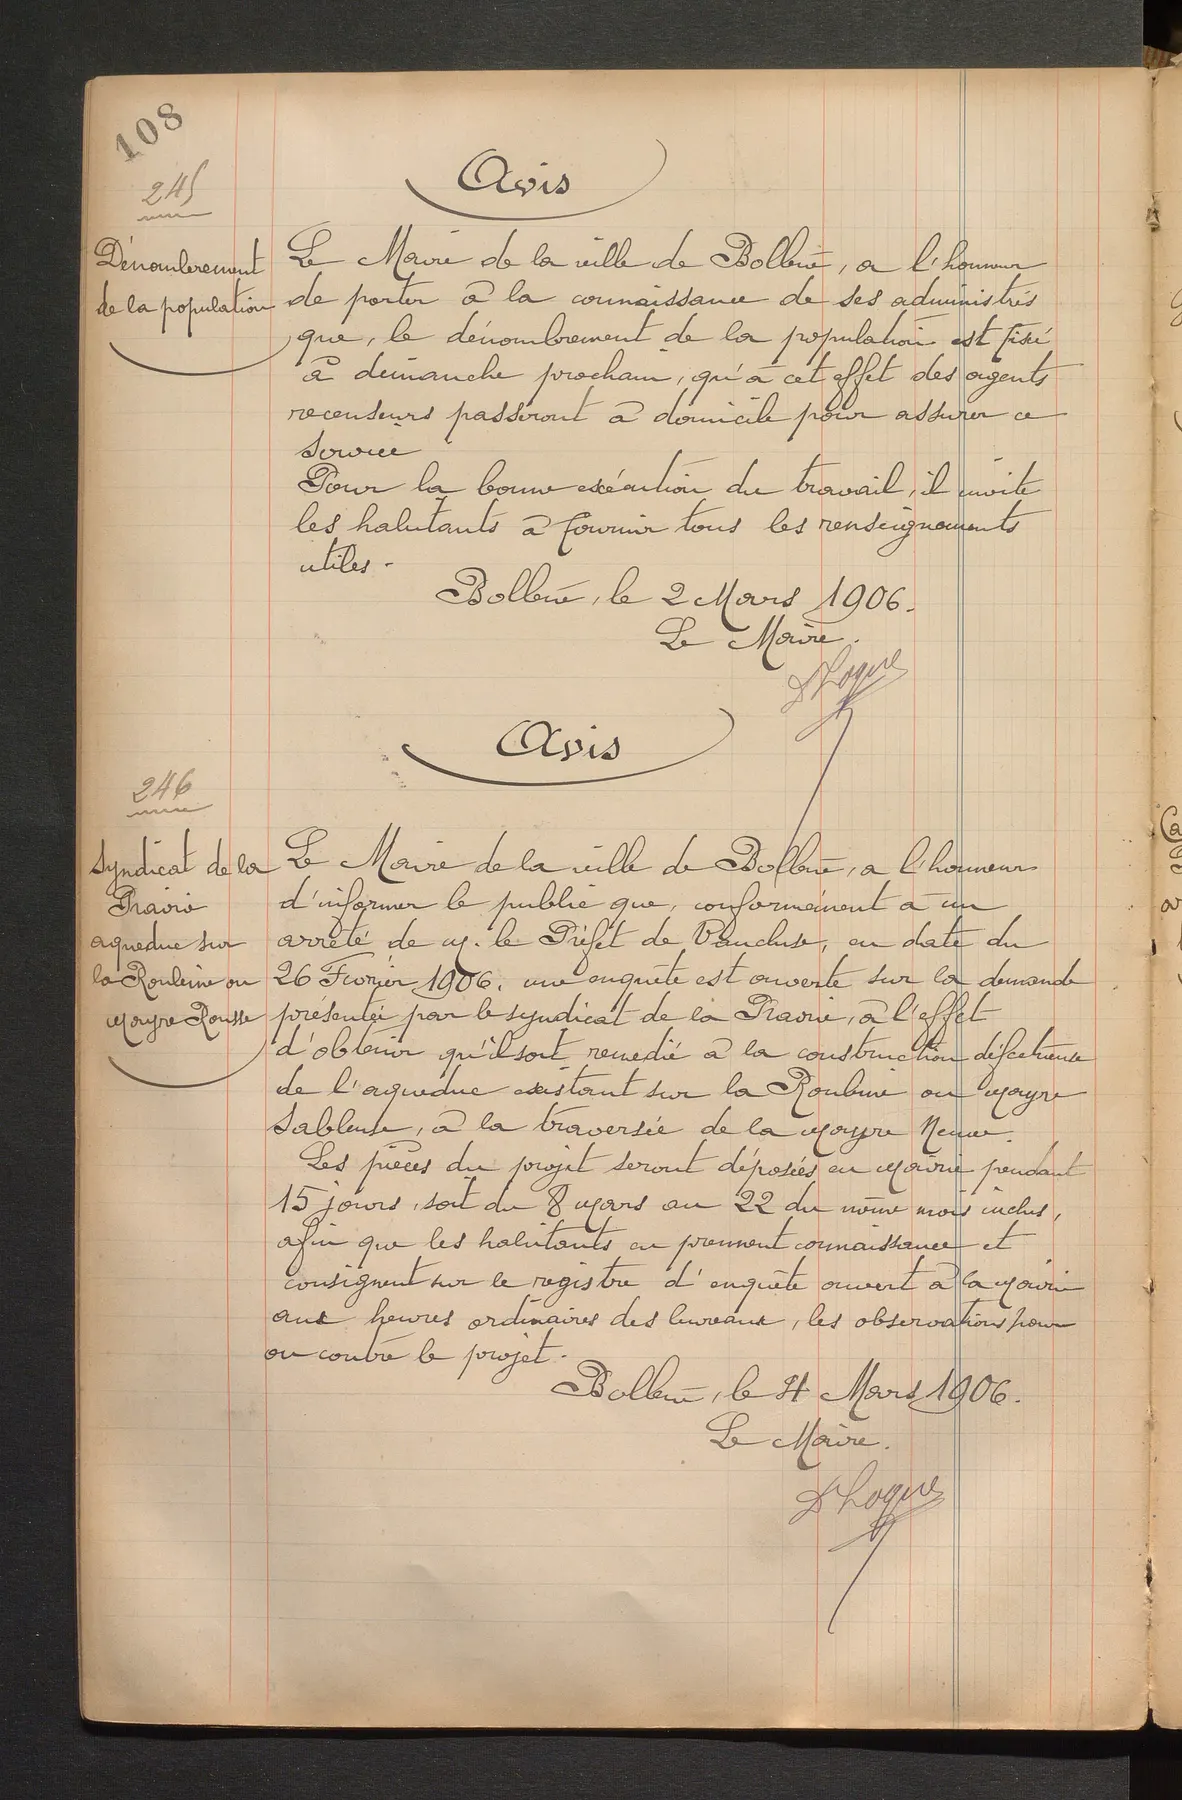 108
245
Avis
Dénombrement
de la population
Le Maire de la ville de Bollène, a l'honneur
de porter à la connaissance de ses administrés
que, le dénombrement de la population est fixé
à dimanche prochain, qu'à cet effet des agents
recenseurs passeront à domicile pour assurer ce
service
Pour la bonne exécution du travail, il invite
les habitants à fournir tous les renseignements
utiles.
Bollène, le 2 Mars 1906.
Le Maire.
Avis
246
Syndicat de la
Prairie
aqueduc sur
la Roubine ou
Mayre Rousse
Le Maire de la ville de Bollène, a l'honneur
d'informer le public que, conformément à un
arrêté de M. le Préfet de Vaucluse, en date du
26 Février 1906, une enquête est ouverte sur la demande
présentée par le syndicat de la Prairie, à l'effet
d'obtenir qu'il soit remedié à la construction défectueuse
de l'aqueduc existant sur la Roubine ou Mayre
Sableuse, à la traversée de la Mayre Neuve.
Les pièces du projet seront déposées en Mairie pendant
15 jours, soit du 8 Mars au 22 du même mois inclus,
afin que les habitants en prennent connaissance et
consignent sur le registre d'enquête ouvert à la Mairie
aux heures ordinaires des bureaux, les observations pour
ou contre le projet.
Bollène, le 4 Mars 1906.
Le Maire.